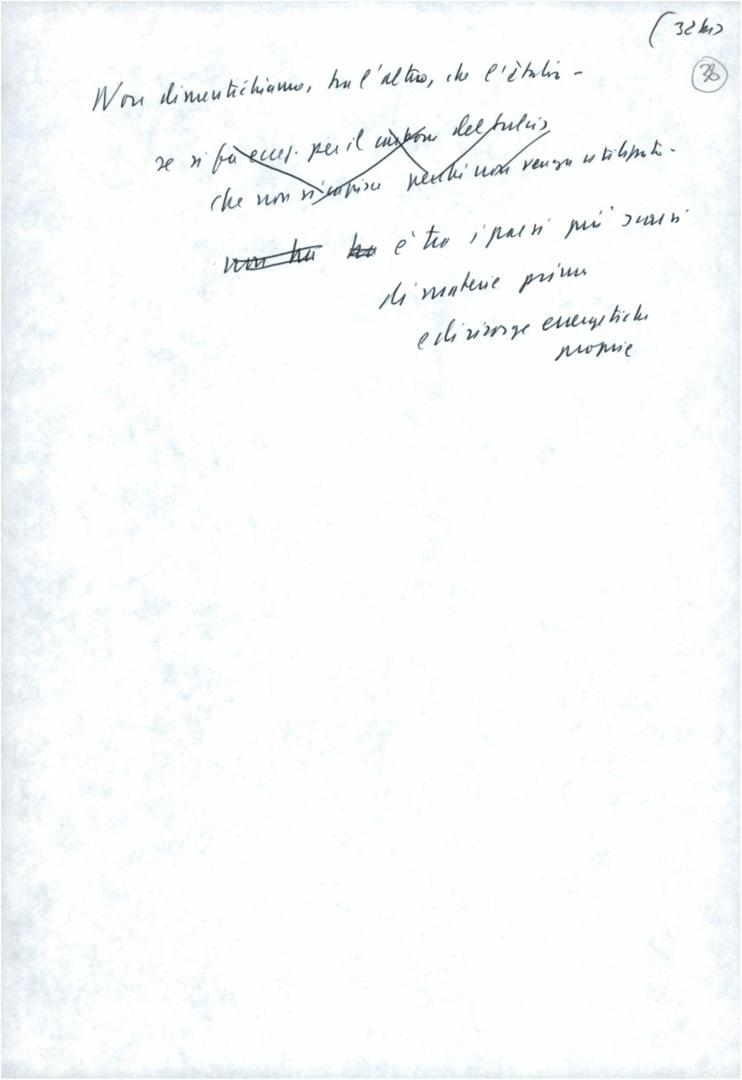 (32 bis
38
Non dimentichiamo, tra l'altro, che l'Italia -
se si fa eccez. per il carbone del Sulcis
che non si capisce perché non venga utilizzato -
non ha ha è tra i paesi più scarsi
di materie prime
e di risorse energetiche
proprie